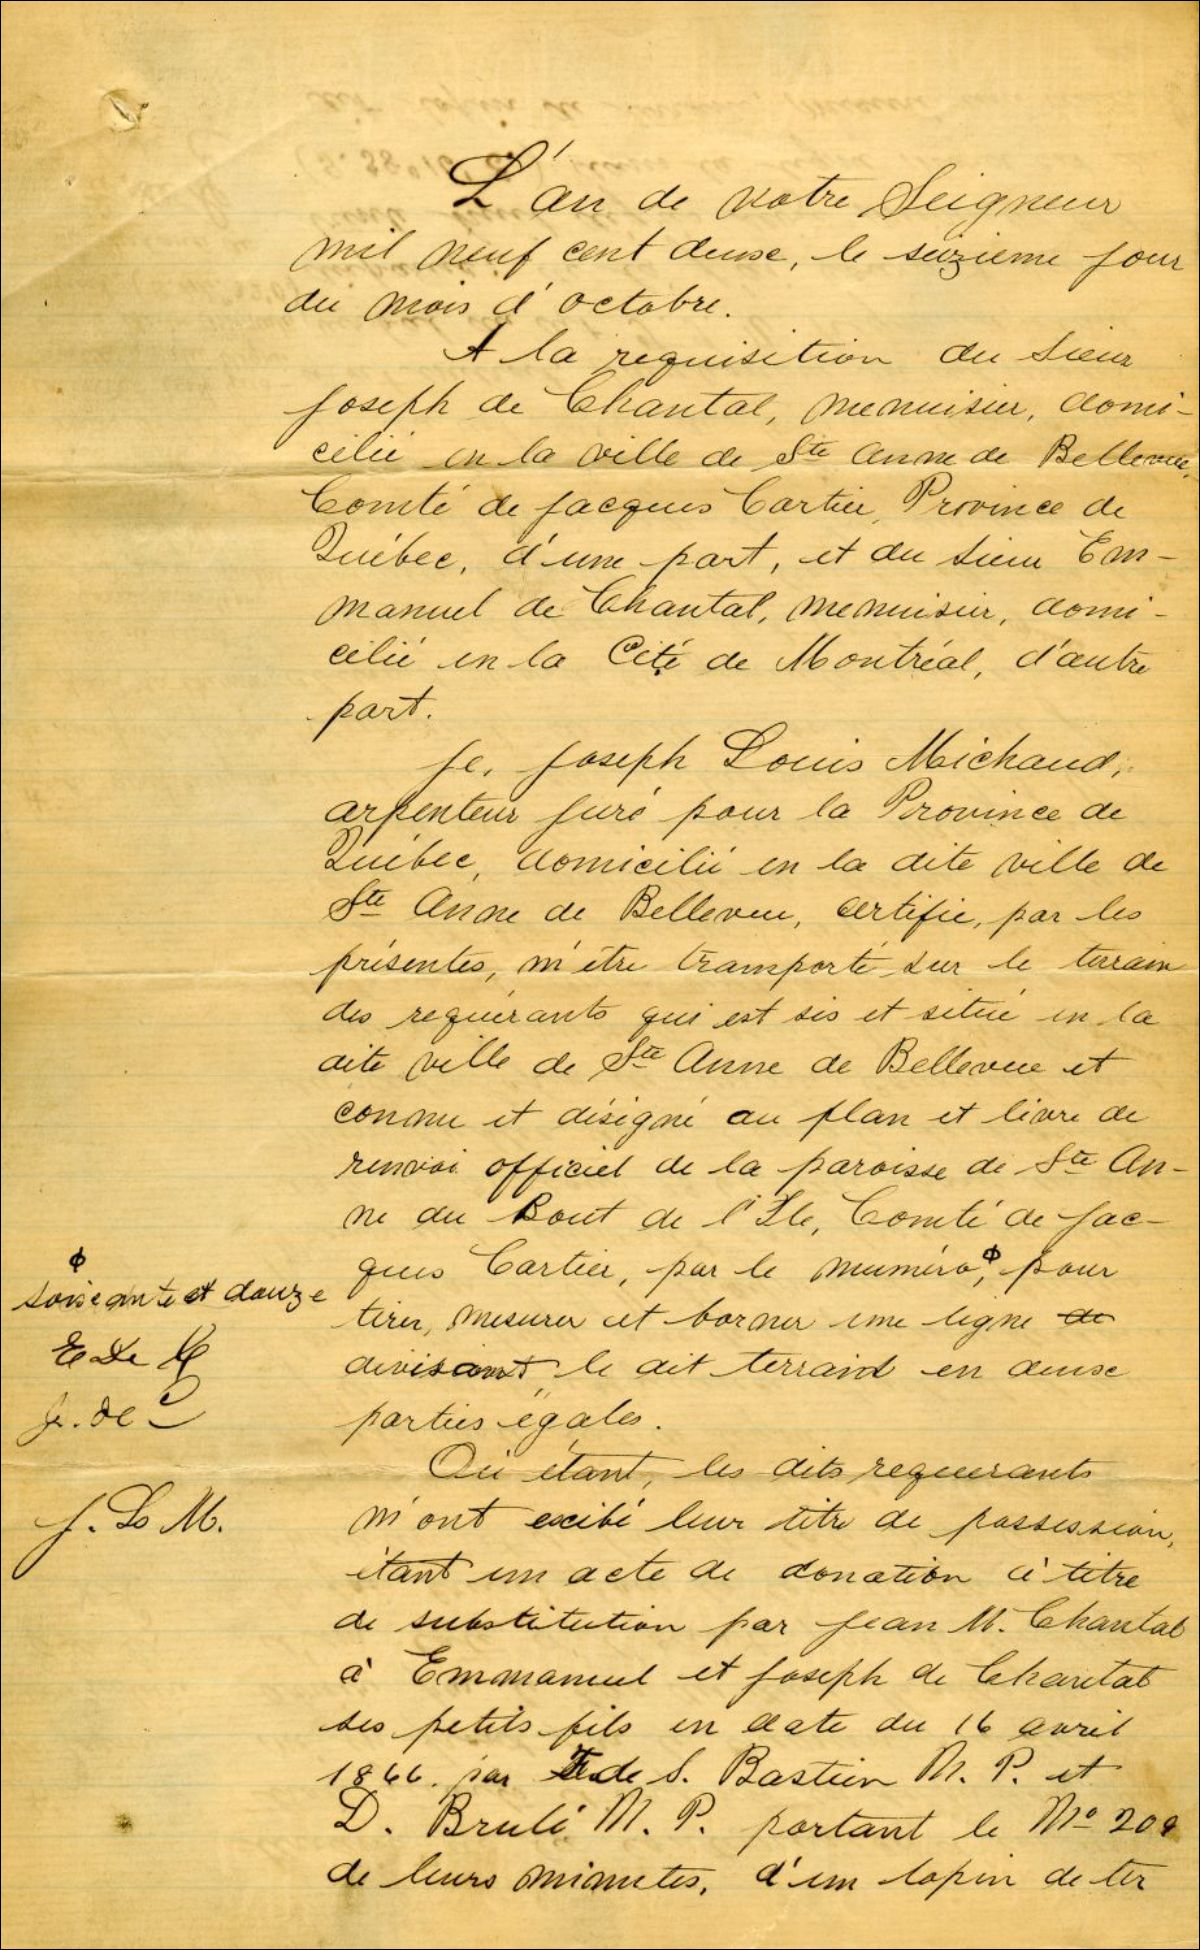 L'an de notre Seigneur
mil neuf cent deuxe, le seizieme jour
du mois d'octobre.
A la requisition du Sieur
Joseph de Chantal, menuisier, domi-
cilié en la ville de Ste Anne de Bellevue,
Comté de Jacques Cartier, Province de
Québec, d'une part, et du Sieur Em-
manuel de Chantal, menuisier, domi-
cilié en la Cité de Montréal, d'autre
part.
Je, Joseph Louis Michaud,
arpenteur juré pour la Province de
Québec, domicilié en la dite ville de
Ste Anne de Bellevue, certifie, par les
présentes, m'être transporté sur le terrain
des requérants qui est sis et situé en la
dite ville de Ste Anne de Bellevue et
connu et désigné au plan et livre de
renvoi officiel de la paroisse de Ste An-
ne du Bout de l'Ile, Comté de Jac-
ques Cartier, par le numéro ɸ, pour
ɸ
soixante et douze
tirer, mesurer et borner une ligne de
E de C
divisant le dit terrain en deuxe
J. de C
parties égales.
Où étant, les dits requerants
J. Ls M.
m'ont exibé leur titre de possession,
étant un acte de donation à titre
de substitution par Jean M. Chantal
à Emmanuel et Joseph de Chantal
ses petits fils en date du 16 avril
1866. par de S. Bastien N. P. et
D. Brulé N. P. portant le No 208
de leurs minutes, d'un lopin de ter